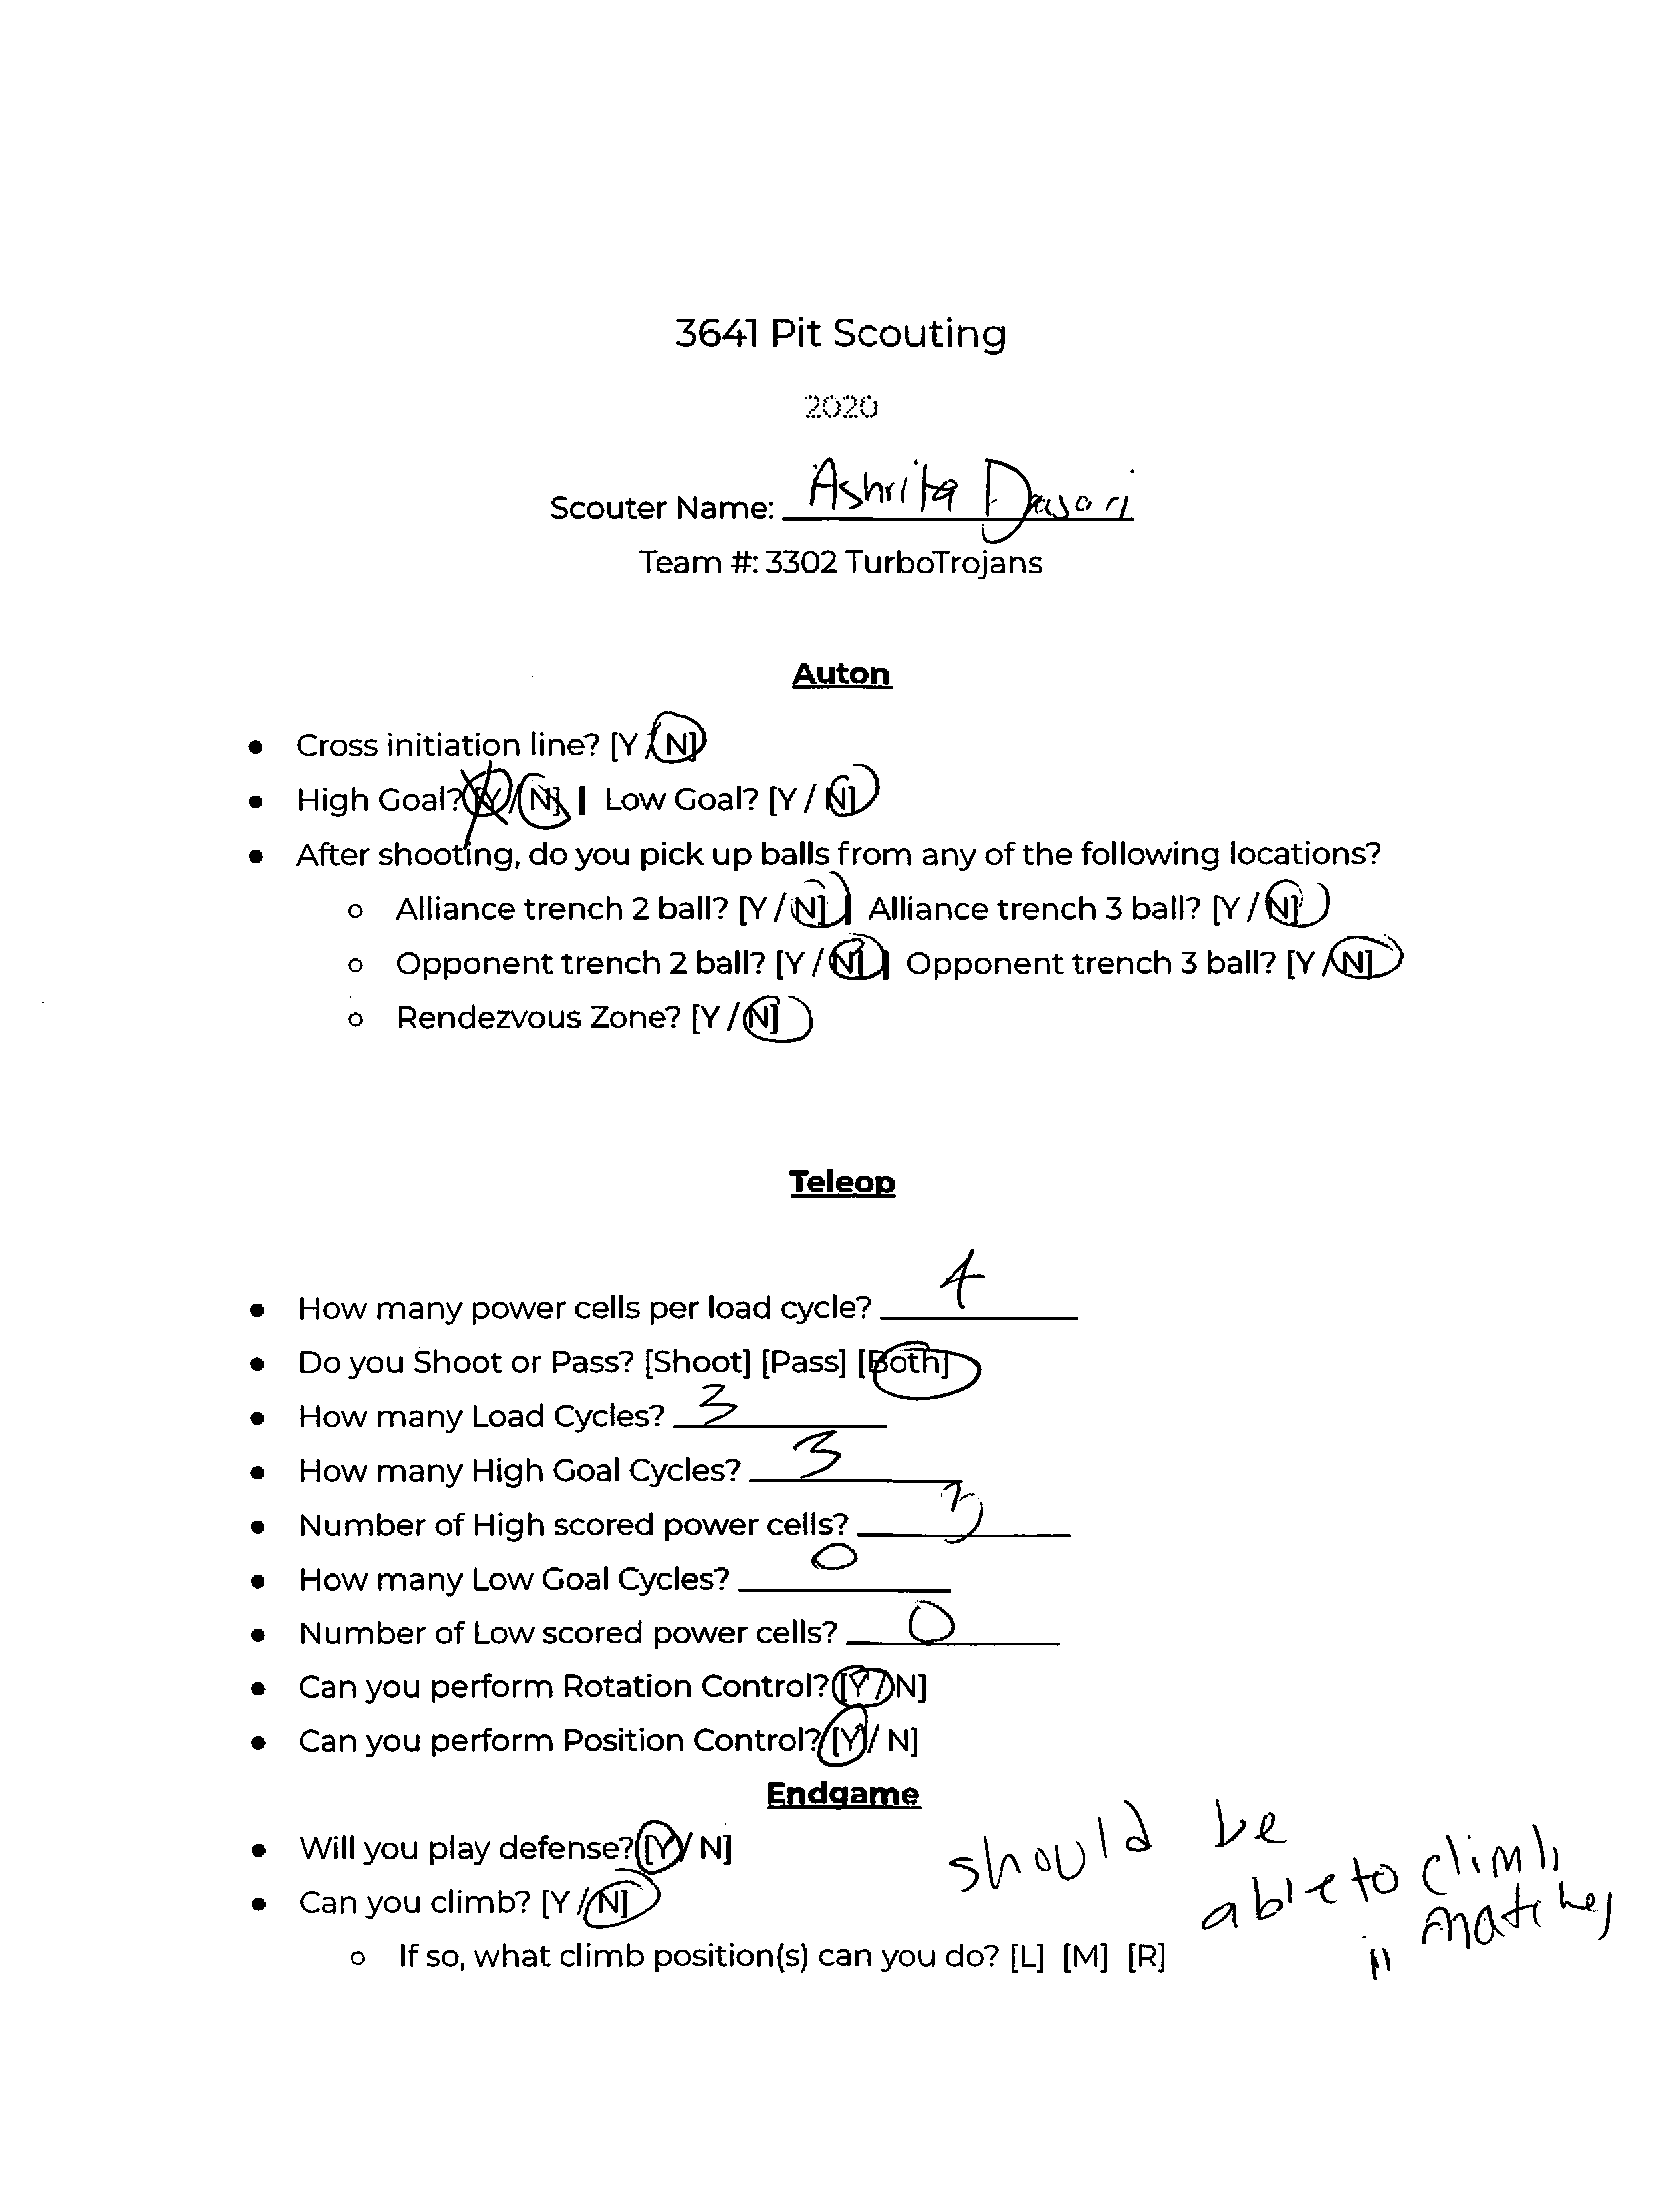 3641 Pit Scouting
2020
Scouter Name: Ashrita Dasari
Team #: 3302 TurboTrojans
Auton
● Cross initiation line? [Y / N]
● High Goal? [Y / N] | Low Goal? [Y / N]
● After shooting, do you pick up balls from any of the following locations?
○ Alliance trench 2 ball? [Y / N] | Alliance trench 3 ball? [Y / N]
○ Opponent trench 2 ball? [Y / N] | Opponent trench 3 ball? [Y / N]
○ Rendezvous Zone? [Y / N]
Teleop
● How many power cells per load cycle? 4
● Do you Shoot or Pass? [Shoot] [Pass] [Both]
● How many Load Cycles? 3
● How many High Goal Cycles? 3
● Number of High scored power cells? 3
● How many Low Goal Cycles? 0
● Number of Low scored power cells? 0
● Can you perform Rotation Control? [Y / N]
● Can you perform Position Control? [Y / N]
Endgame
● Will you play defense? [Y / N]
● Can you climb? [Y / N]
should be
able to climb
in matches
○ If so, what climb position(s) can you do? [L] [M] [R]